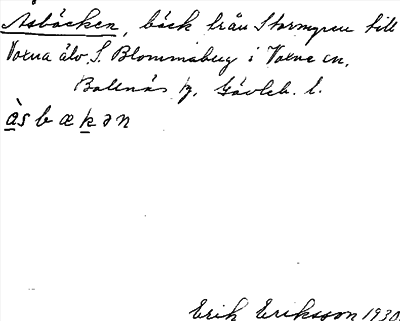 Åsbäcken, bäck från Stormyren till
Voxna älv, S. Blommaberg i Voxna sn,
Bollnäs tg. Gävleb. l.
åsbækən
Erik Eriksson 1930.